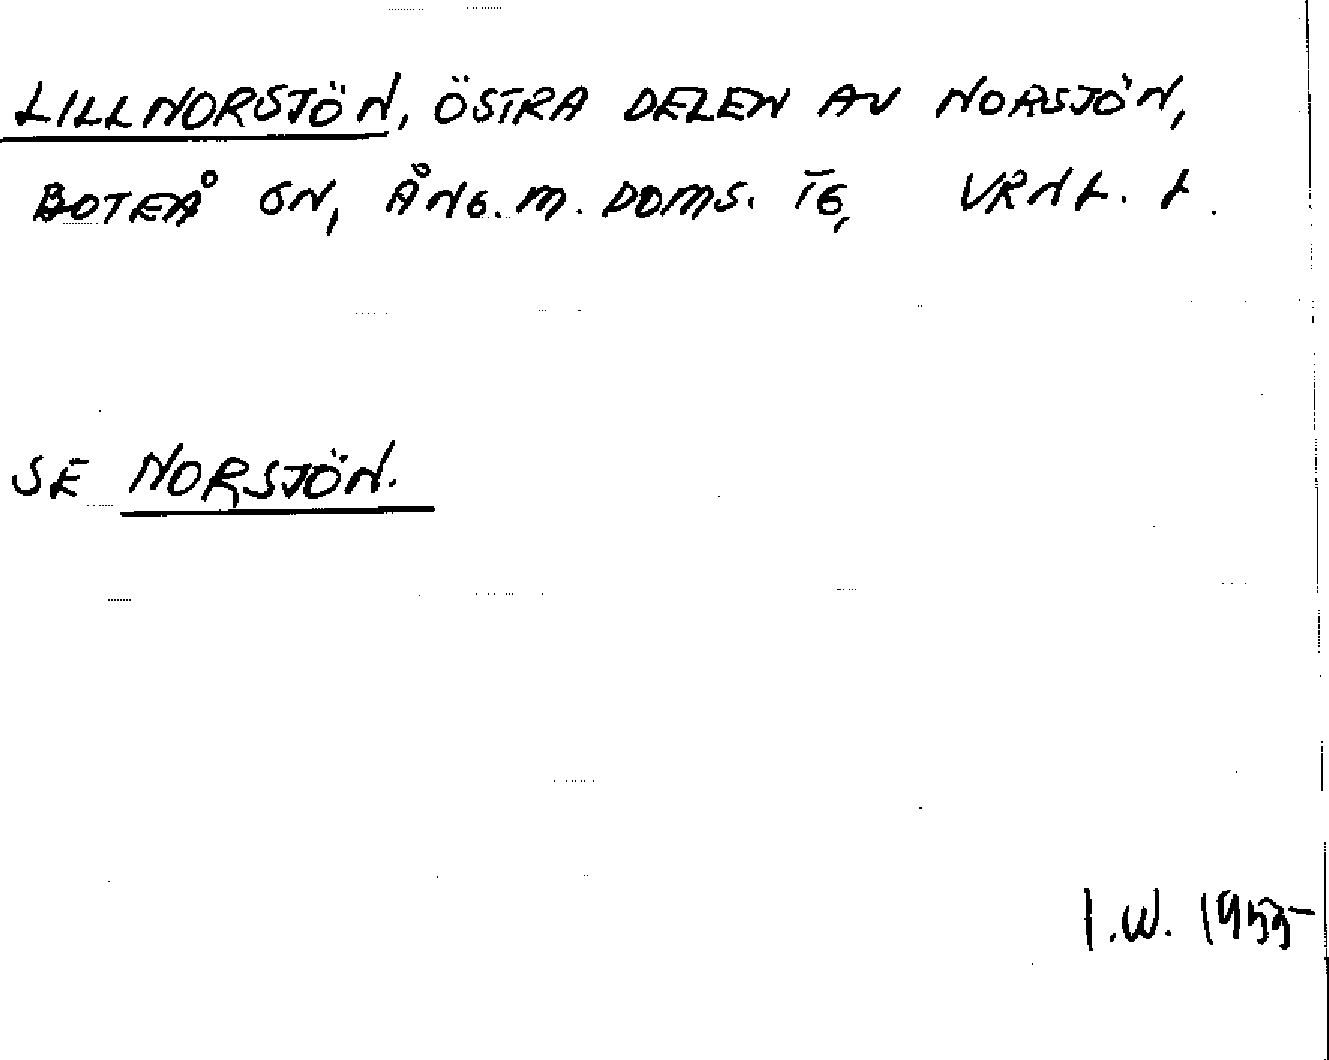 LILLNORSJÖN, ÖSTRA DELEN AV NORSJÖN,
BOTEÅ SN, ÅNG. M. DOMS. TG, VRNL. L.
SE NORSJÖN.
I.W. 1955